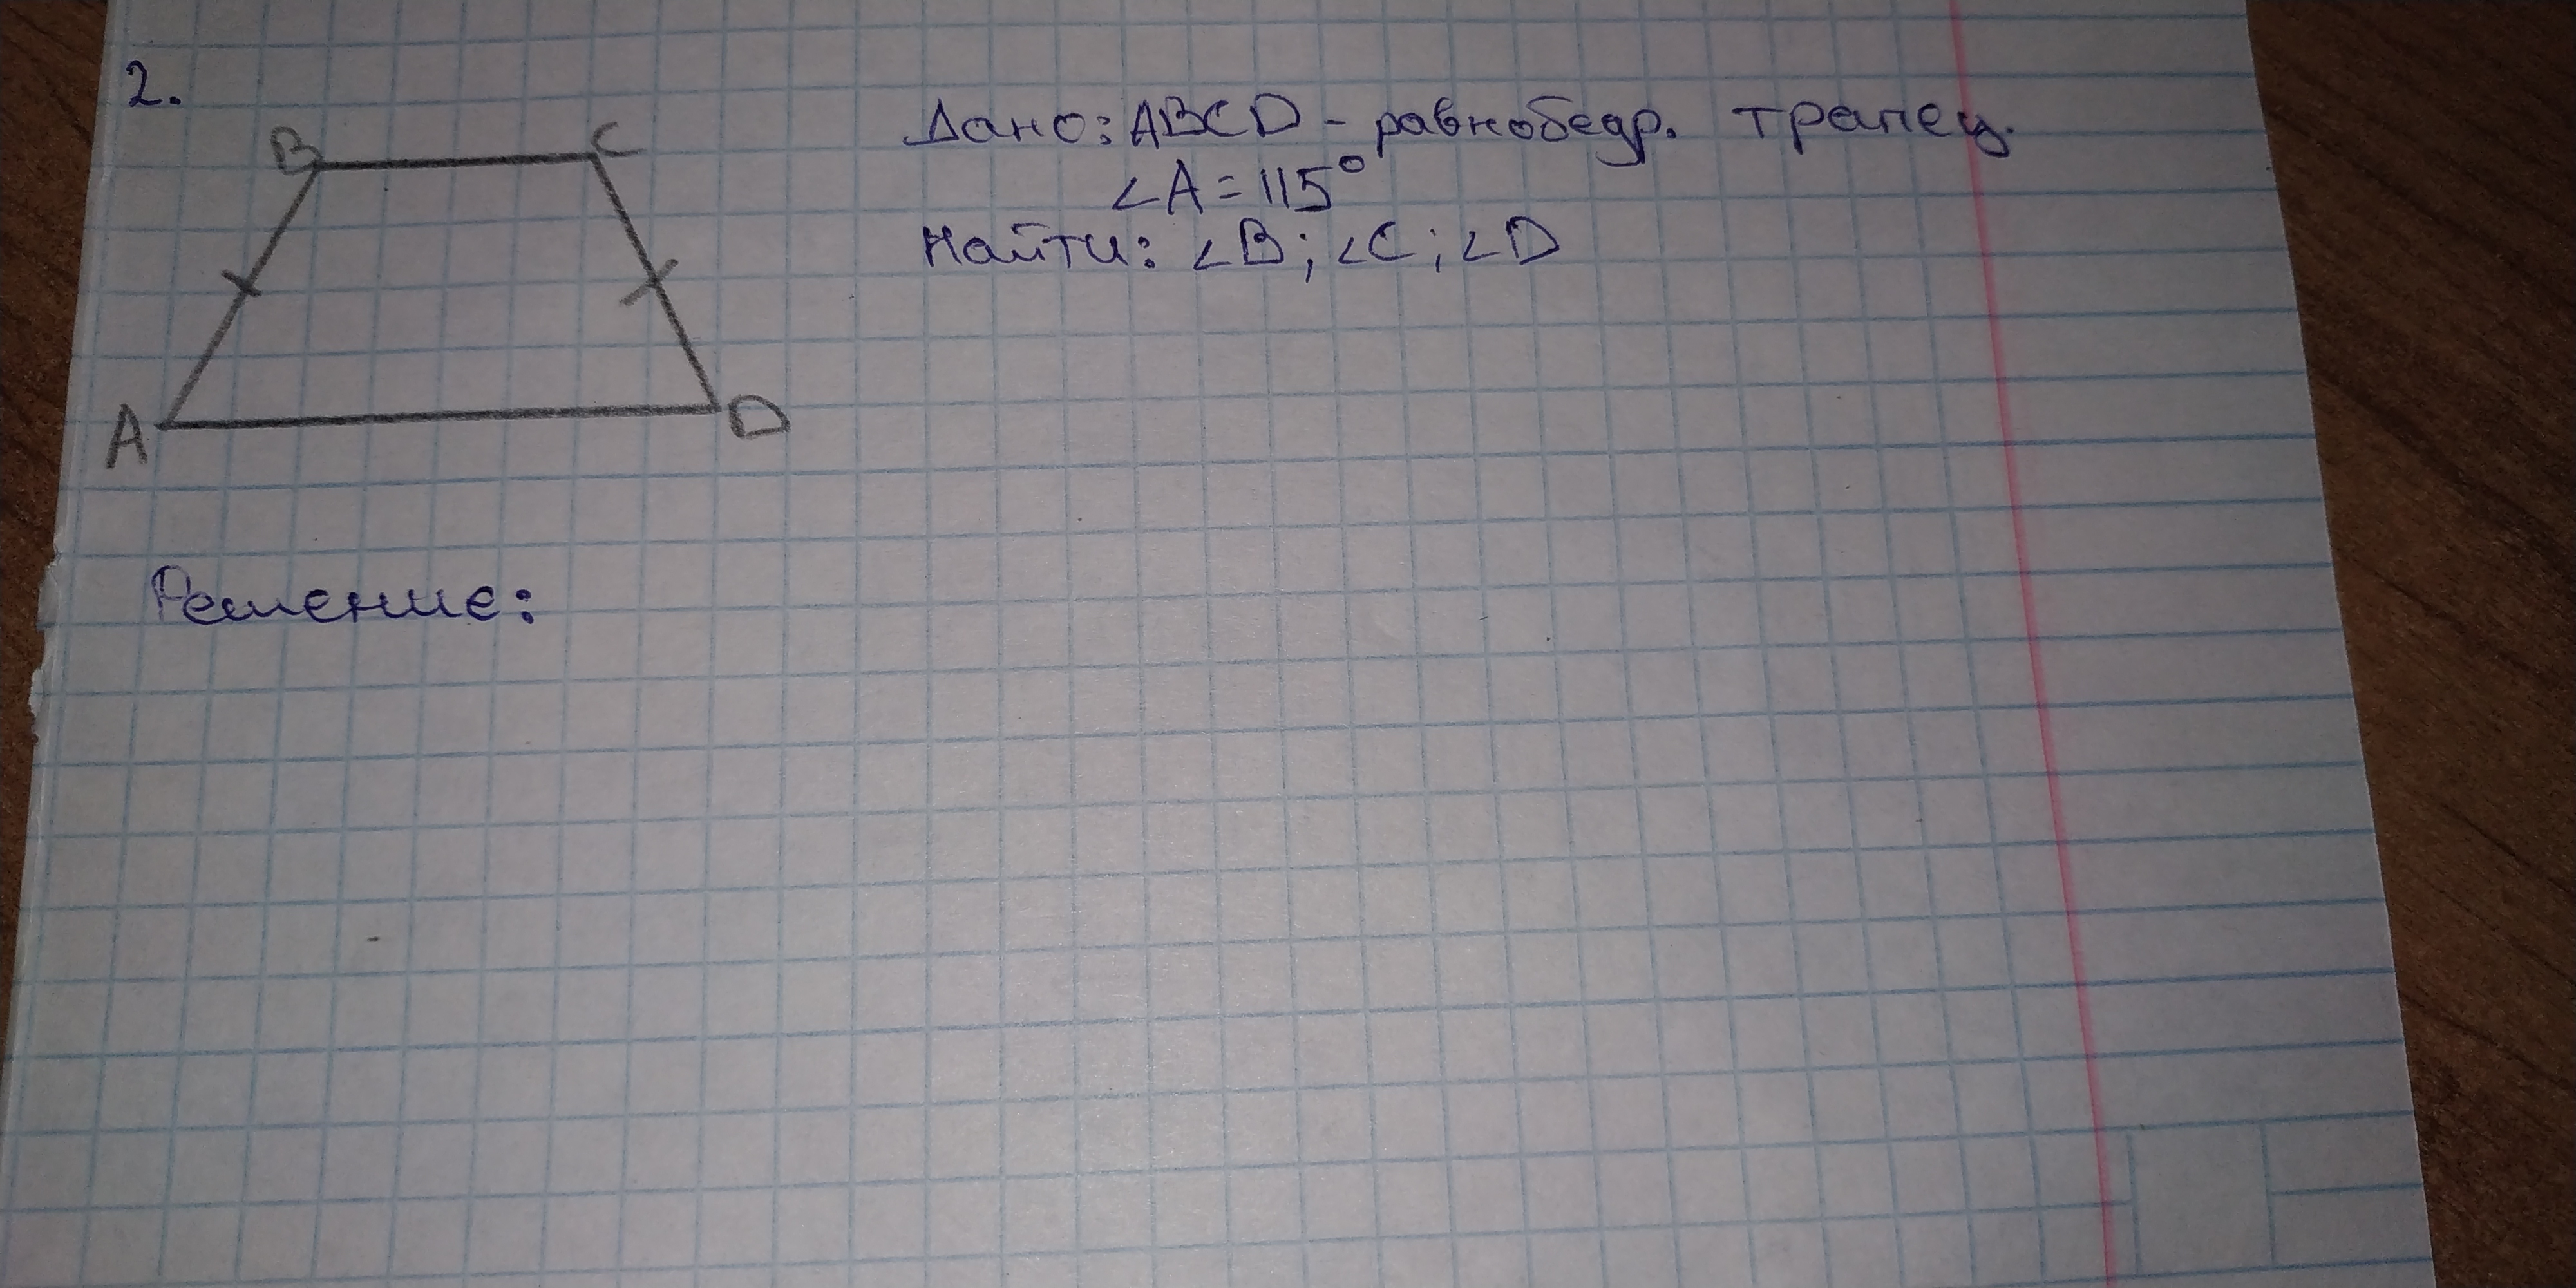 2.
B C
A D
Дано: ABCD - равнобедр. трапец.
∠A = 115°
Найти: ∠B; ∠C; ∠D
Решение: